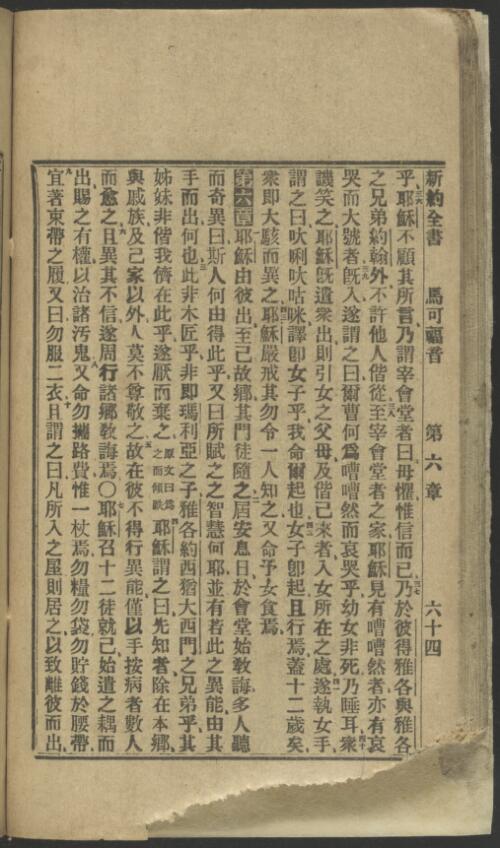 新約全書 馬可福音 第六章 六十四
乎耶穌不顧其所言乃謂宰會堂者曰毋懼惟信而已乃於彼得雅各與雅各
之兄弟約翰外不許他人偕從至宰會堂者之家耶穌見有嘈嘈然者亦有哀
哭而大號者旣入遂謂之曰爾曹何爲嘈嘈然而哀哭乎幼女非死乃睡耳衆
譏笑之耶穌旣遣衆出則引女之父母及偕己來者入女所在之處遂執女手
謂之曰吠唎吠咕咪譯卽女子乎我命爾起也女子卽起且行焉蓋十二歲矣
衆卽大駭而異之耶穌嚴戒其勿令一人知之又命予女食焉
第六章耶穌由彼出至己故鄉其門徒隨之屆安息日於會堂始敎誨多人聽
而奇異曰斯人何由得此乎又曰所賦之之智慧何耶並有若此之異能由其
手而出何也此非木匠乎非卽瑪利亞之子雅各約西猶大西門之兄弟乎其
姊妹非偕我儕在此乎遂厭而棄之原文曰爲之而傾跌耶穌謂之曰先知者除在本鄉
與戚族及己家以外人莫不尊敬之故在彼不得行異能僅以手按病者數人
而愈之且異其不信遂周行諸鄉敎誨焉〇耶穌召十二徒就己始遣之耦而
出賜之有權以治諸汚鬼又命勿攜路費惟一杖焉勿糧勿袋勿貯錢於腰帶
宜著束帶之履又曰勿服二衣且謂之曰凡所入之屋則居之以致離彼而出